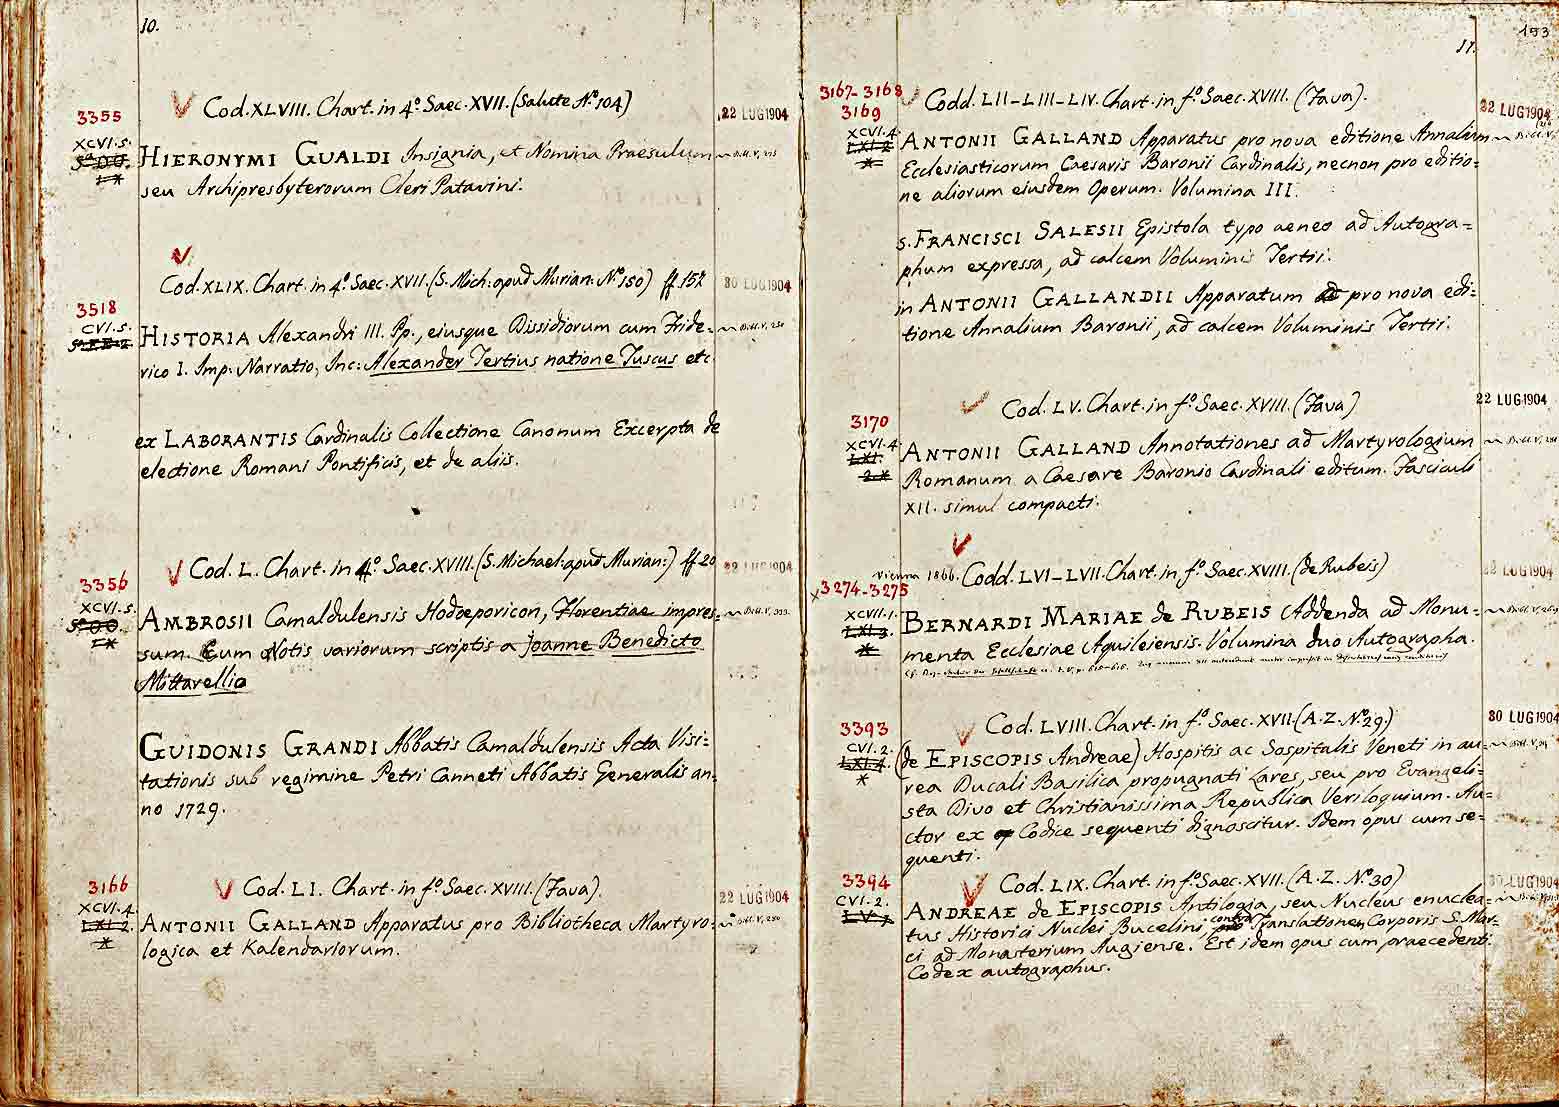 10.
3355
Cod. XLVIII. Chart. in 4.º Saec. XVII. (Salute Nº 104)
22 LUG 1904
XCVI. 5.
HIERONYMI GUALDI Insignia, et Nomina Praesulum
seu Archipresbyterorum Cleri Patavini.
Cod. XLIX. Chart. in 4º. Saec. XVII. (S. Mich: apud Murian: Nº 150) ff. 152
30 LUG 1904
3518
CVI. 5.
HISTORIA Alexandri III. Pp., eiusque Dissidiorum cum Fride=
rico I. Imp: Narratio, Inc: Alexander Tertius natione Tuscus etc
ex LABORANTIS Cardinalis Collectione Canonum Excerpta de
electione Romani Pontificis, et de aliis.
Cod. L. Chart. in 4º. Saec. XVIII. (S. Michael: apud Murian:) ff 20
22 LUG 1904
3356
XCVI. 5.
AMBROSII Camaldulensis Hodoeporicon, Florentiae impres=
sum. Cum Notis variorum scriptis a Joanne Benedicto
Mittarellio
GUIDONIS GRANDI Abbatis Camaldulensis Acta Visi=
tationis sub regimine Petri Canneti Abbatis Generalis an=
no 1729.
3166
Cod. LI. Chart. in fº. Saec. XVIII. (Fava).
22 LUG 1904
XCVI. 4.
ANTONII GALLAND Apparatus pro Bibliotheca Martyro=
logica et Kalendariorum.
193
11.
3167-3168
3169
Codd. LII-LIII-LIV. Chart. in fº. Saec. XVIII. (Fava).
22 LUG 1904
XCVI. 4.
ANTONII GALLAND Apparatus pro nova editione Annalium
Ecclesiasticorum Caesaris Baronii Cardinalis, necnon pro editio=
ne aliorum eiusdem Operum. Volumina III.
S. FRANCISCI SALESII Epistola typo aeneo ad Autogra=
phum expressa, ad calcem Voluminis Tertii.
in ANTONII GALLANDII Apparatum pro nova edi=
tione Annalium Baronii, ad calcem Voluminis Tertii.
Cod. LV. Chart. in fº. Saec. XVIII. (Fava)
22 LUG 1904
3170
XCVI. 4.
ANTONII GALLAND Annotationes ad Martyrologium
Romanum a Caesare Baronio Cardinali editum. Fasciculi
XII. simul compacti.
Vienna 1866. Codd. LVI-LVII. Chart. in fº. Saec. XVIII. (de Rubeis)
22 LUG 1904
x3274-3275
XCVII. 1.
BERNARDI MARIAE de RUBEIS Addenda ad Monu=
menta Ecclesiae Aquileiensis. Volumina duo Autographa.
3393
Cod. LVIII. Chart. in fº. Saec. XVII. (A. Z. Nº. 29.)
30 LUG 1904
CVI. 2.
(de EPISCOPIS Andreae) Hospitis ac Sospitalis Veneti in au=
rea Ducali Basilica propugnati Lares, seu pro Evangeli=
sta Divo et Christianissima Republica Veriloquium. Au=
ctor ex Codice sequenti dignoscitur. Idem opus cum se=
quenti.
3394
Cod. LIX. Chart. in fº. Saec. XVII. (A. Z. Nº 30)
30 LUG 1904
CVI. 2.
ANDREAE de EPISCOPIS Antilogia, seu Nucleus enuclea=
tus Historici Nuclei Bucelini, contra Translationem Corporis S. Mar=
ci ad Monasterium Augiense. Est idem opus cum praecedenti.
Codex autographus.